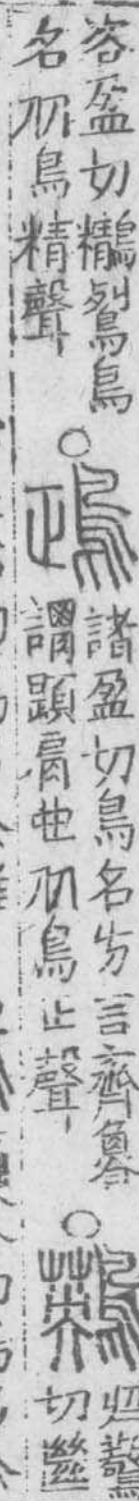 咨盈切鴷鳥
名从鳥精聲
○
鴊
諸盈切鳥名方言齊魯
謂題肩也从鳥正聲
○
驚
切